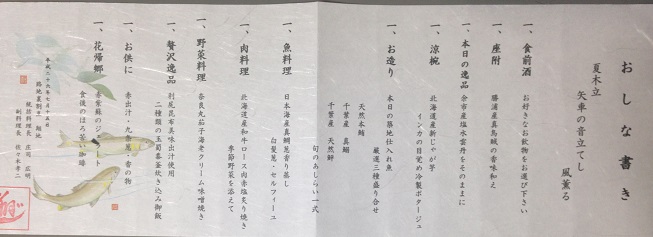 おしな書き
夏木立
矢車の音立てし
風薫る
一、食前酒
お好きなお飲物をお選び下さい
一、座附
勝浦産真鳥賊の香味和え
一、本日の逸品
余市産塩水雲丹をそのままに
一、涼椀
北海道産新じゃが芋
インカの目覚め冷製ポタージュ
一、お造り
本日の築地仕入れ魚
厳選三種盛り合せ
天然本鮪
千葉産 真鯛
千葉産 天然鮃
旬のあしらい一式
一、魚料理
日本海産真鯛葱香り蒸し
白髪葱・セルフィーユ
一、肉料理
北海道産和牛ロース肉赤塩炙り焼き
季節野菜を添えて
一、野菜料理
奈良丸茄子海老クリーム味噌焼き
一、贅沢逸品
利尻昆布美味出汁使用
二種類の玉蜀黍釜炊き込み御飯
一、お供に
赤出汁・九条葱・香の物
一、花帰郷
赤紫蘇のジュレ
食後のほろ苦い珈琲
平成二十六年七月十五日
総括料理長 庄司 広明
副料理長 佐々木孝二